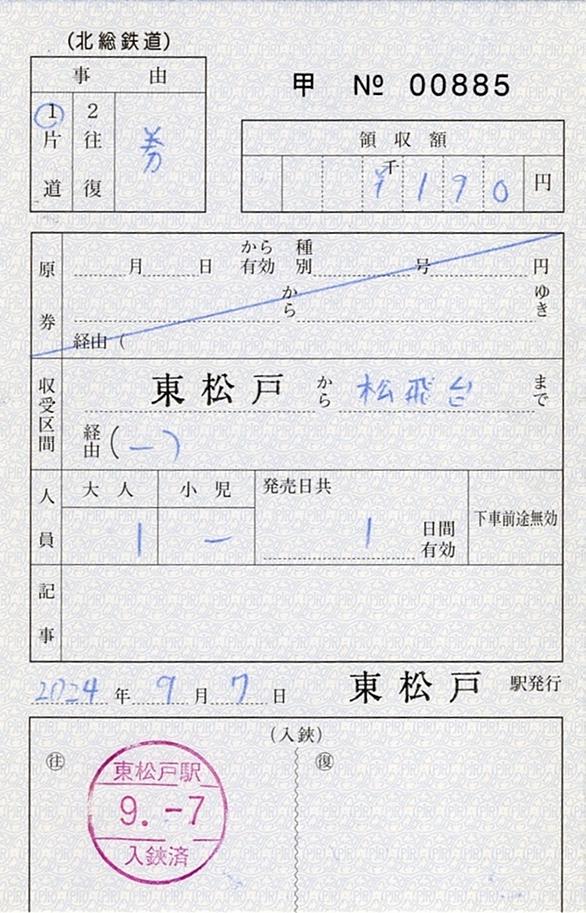 (北総鉄道)
事由
甲 № 00885
1 片道
2 往復
券
領収額
千
¥190円
原券
月 日 から有効 種別 号 円
から ゆき
経由(
収受区間
東松戸 から 松飛台 まで
経由(ー)
人員
大人 小児 発売日共
1 ー 1 日間有効
下車前途無効
記事
2024年9月7日 東松戸 駅発行
(入鋏)
往 復
東松戸駅
9.-7
入鋏済